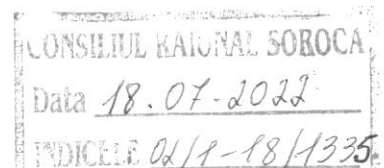 CONSILIUL RAIONAL SOROCA
Data 18.07-2022
INDICELE 02/1-18/1335